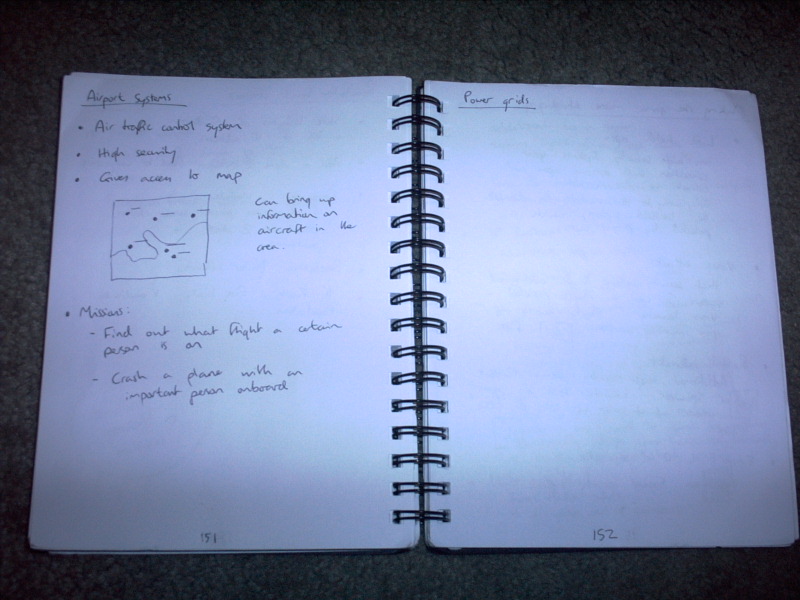 Airport systems
• Air traffic control system
• High security
• Gives access to map
Can bring up
information on
aircraft in the
area.
• Missions:
- Find out what flight a certain
person is on
- Crash a plane with an
important person onboard
151
Power grids
152